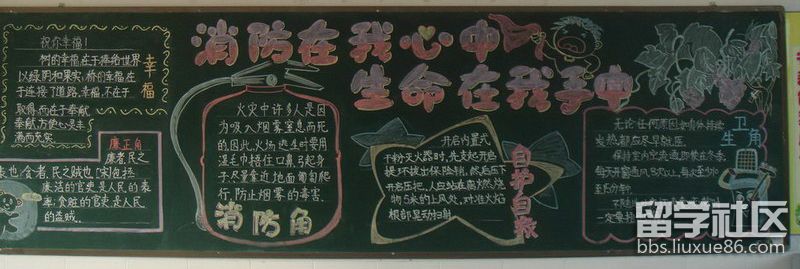 消防在我心中
生命在我手中
祝你幸福!
树的幸福在于捧给世界
以绿阴和果实,桥的幸福在
于连接了道路,幸福,不在于
取得,而在于奉献
奉献,方使心灵丰
满而充实
幸福
廉正角
廉者,民之
表也;贪者,民之贼也[宋]包拯
廉洁的官吏是人民的表
率;贪脏的官吏是人民
的盗贼。
火灾中许多人是因
为吸入烟雾窒息而死
的因此,火场逃生时要用
湿毛巾捂住口鼻,弓起身
子尽量靠近地面匍匐爬
行,防止烟雾的毒害。
消防角
开启内置式
干粉灭火器时,先拔起开启
提环拔出保险销,然后压下
开启压把,人应站在离燃烧
物5米的上风处,对准火焰
根部晃动扫射
自护自救
卫生角
无论任何原因
发热都应尽早就医。
保持室内空气通
留学社区
bbs.liuxue86.com